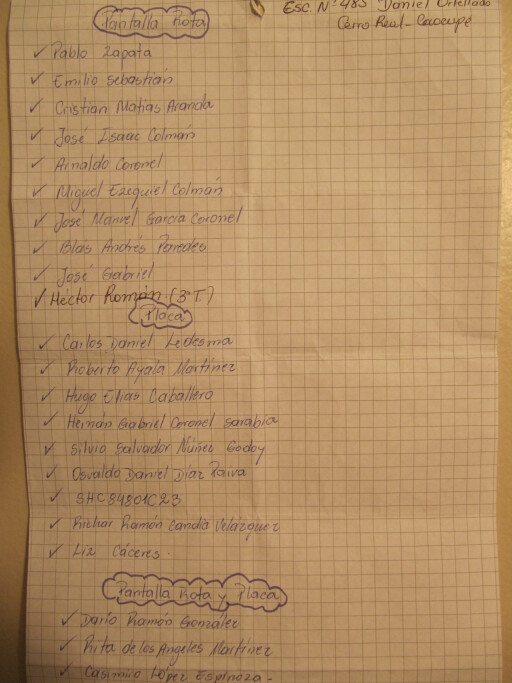 Esc. Nº 485 Daniel Ortellado
Cerro Real - Caacupé
Pantalla Rota
✓ Pablo Zapata
✓ Emilio Sebastián
✓ Cristian Matías Aranda
✓ José Isaac Colmán
✓ Arnaldo Coronel
✓ Miguel Ezequiel Colmán
✓ José Manuel García Coronel
✓ Blas Andrés Paredes
✓ José Gabriel
✓ Héctor Román (3º T.)
Placa
✓ Carlos Daniel Ledesma
✓ Rioberto Ayala Martínez
✓ Hugo Elias Caballero
✓ Hernán Gabriel Coronel Sarabia
✓ Silvio Salvador Núñez Godoy
✓ Osvaldo Daniel Díaz Paiva
✓ SHC84801C23
✓ Richar Ramón Candia Velázquez
✓ Liz Cáceres.
Pantalla Rota y Placa
✓ Darío Ramón González
✓ Rita de los Angeles Martínez
✓ Casimiro López Espinoza -